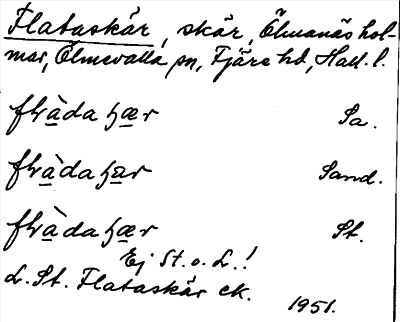 Flataskär, skär, Ölmanäs hol-
mar, Ölmevalla sn, Fjäre hd, Hall. l.
flàdaʒær Sa.
flàdaʒar Sand.
flàdaʒær St.
Ej St. o. L.!
L. St. Flataskär ek.
1951.